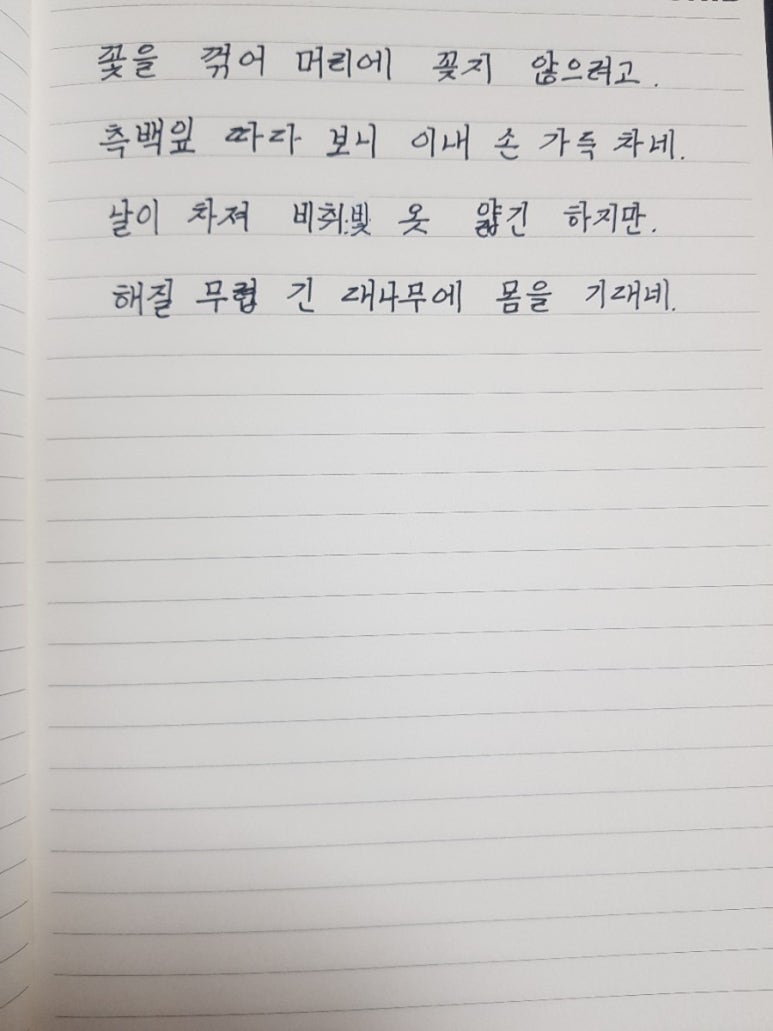 꽃을 꺾어 머리에 꽂지 않으려고.
측백잎 따다 보니 이내 손 가득 차네.
날이 차져 비취빛 옷 얇긴 하지만.
해질 무렵 긴 대나무에 몸을 기대네.